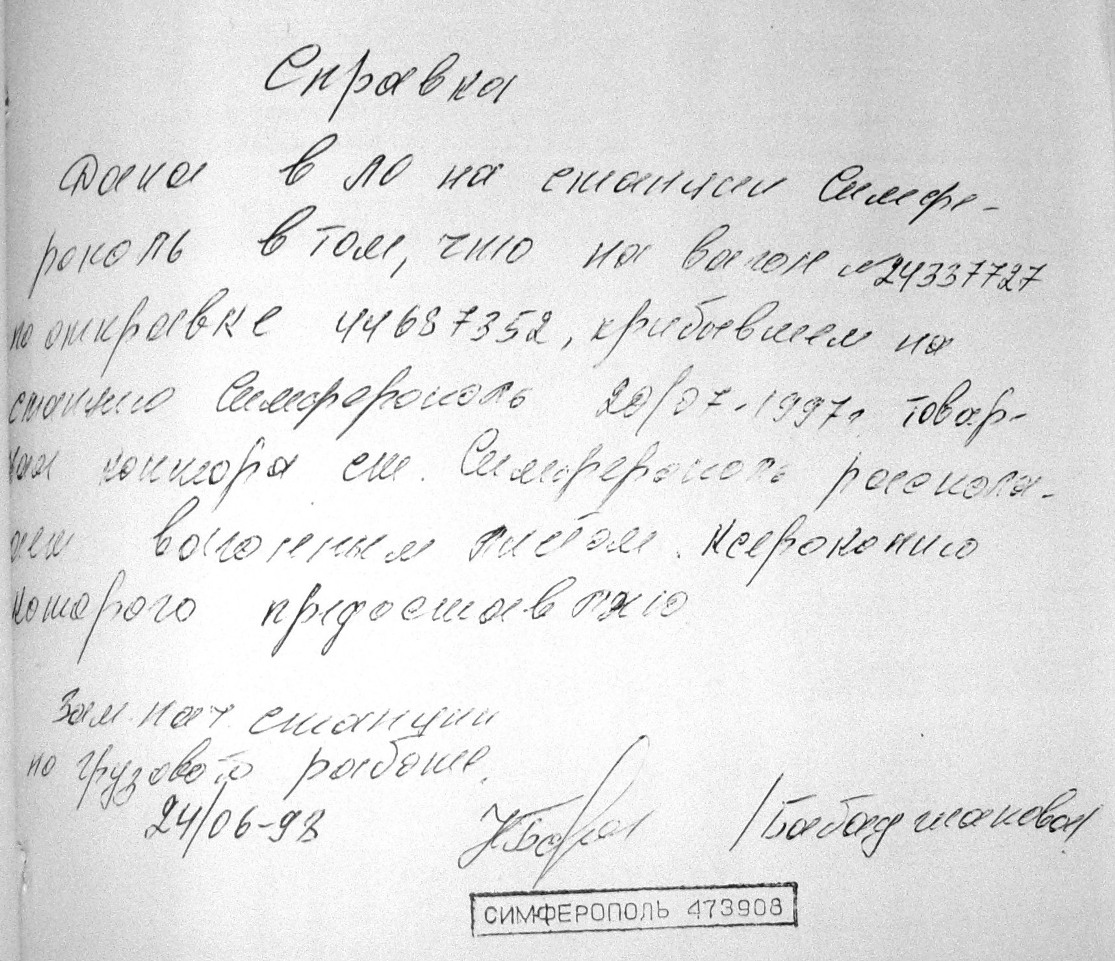 Справка
Дана в ЛО на станции Симфе-
рополь в том, что на вагон №24337727
по отправке 44687352, прибывшем на
станцию Симферополь 20/07-1997г. товар-
ная контора ст. Симферополь распола-
гает вагонным листом. Ксерокопию
которого предоставляю
Зам. нач. станции
по грузовой работе.
24/06-98
/Бабаджанова/
СИМФЕРОПОЛЬ 473908